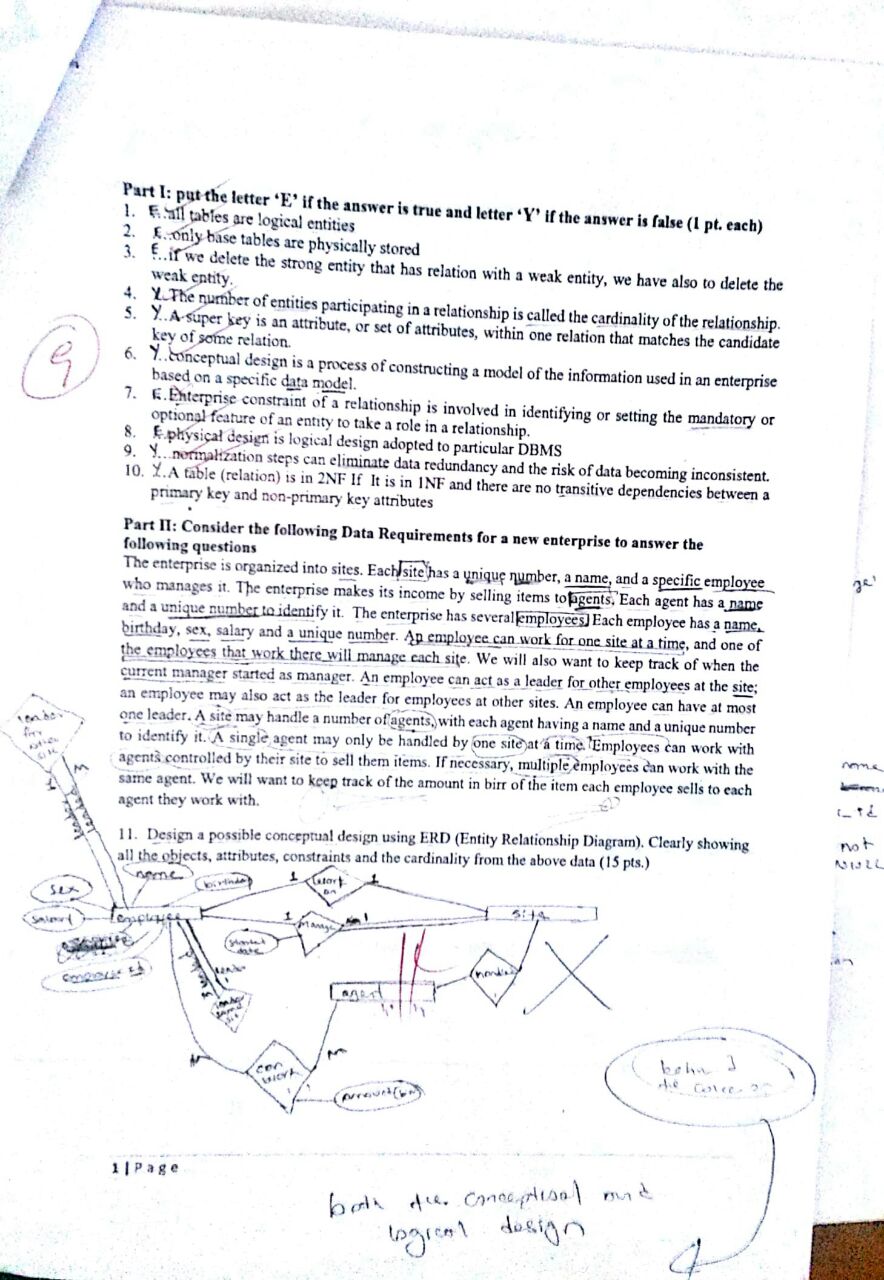 Part I: put the letter ‘E’ if the answer is true and letter ‘Y’ if the answer is false (1 pt. each)
1. E..all tables are logical entities
2. E..only base tables are physically stored
3. E..if we delete the strong entity that has relation with a weak entity, we have also to delete the
weak entity.
4. Y..The number of entities participating in a relationship is called the cardinality of the relationship.
5. Y..A super key is an attribute, or set of attributes, within one relation that matches the candidate
key of some relation.
6. Y..conceptual design is a process of constructing a model of the information used in an enterprise
based on a specific data model.
7. E.Enterprise constraint of a relationship is involved in identifying or setting the mandatory or
optional feature of an entity to take a role in a relationship.
8. E.physical design is logical design adopted to particular DBMS
9. Y...normalization steps can eliminate data redundancy and the risk of data becoming inconsistent.
10. Y.A table (relation) is in 2NF If It is in 1NF and there are no transitive dependencies between a
primary key and non-primary key attributes
9
Part II: Consider the following Data Requirements for a new enterprise to answer the
following questions
The enterprise is organized into sites. Each site has a unique number, a name, and a specific employee
who manages it. The enterprise makes its income by selling items to agents. Each agent has a name
and a unique number to identify it. The enterprise has several employees. Each employee has a name,
birthday, sex, salary and a unique number. An employee can work for one site at a time, and one of
the employees that work there will manage each site. We will also want to keep track of when the
current manager started as manager. An employee can act as a leader for other employees at the site;
an employee may also act as the leader for employees at other sites. An employee can have at most
one leader. A site may handle a number of agents, with each agent having a name and a unique number
to identify it. A single agent may only be handled by one site at a time. Employees can work with
agents controlled by their site to sell them items. If necessary, multiple employees can work with the
same agent. We will want to keep track of the amount in birr of the item each employee sells to each
agent they work with.
11. Design a possible conceptual design using ERD (Entity Relationship Diagram). Clearly showing
all the objects, attributes, constraints and the cardinality from the above data (15 pts.)
name
birthday
1
work
on
1
sex
salary
employee
1
manage
1
site
started
date
employee id
agent
handle
leader
same
site
M
M
can
work
amount(br)
behind
1 | Page
both the conceptual and
logical design
not
NULL